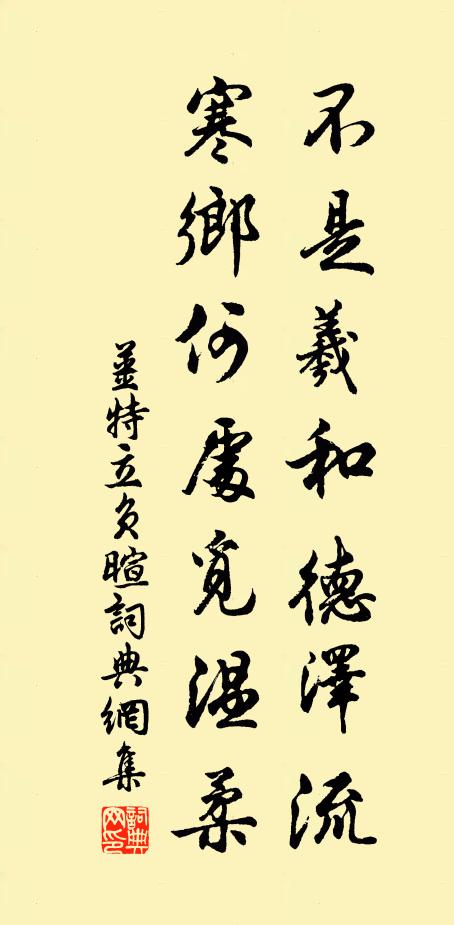 不是羲和德澤流
寒鄉何處覓温柔
姜特立負暄詞典網集
詞典網印